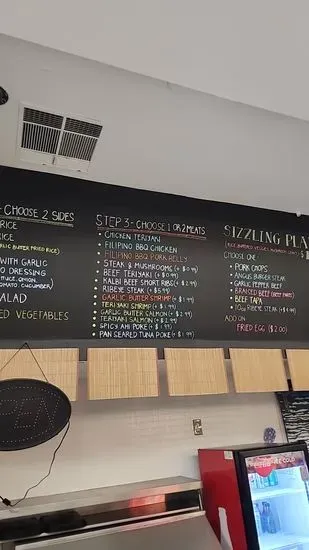 - CHOOSE 2 SIDES
RICE
RICE
GARLIC BUTTER FRIED RICE)
WITH GARLIC
DRESSING
TOMATO CUCUMBER)
SALAD
VEGETABLES
STEP 3 - CHOOSE 1 OR 2 MEATS
• CHICKEN TERIYAKI
• FILIPINO BBQ CHICKEN
• FILIPINO BBQ PORK BELLY
• STEAK & MUSHROOMS (+ $0.99)
• BEEF TERIYAKI (+ $0.99)
• KALBI BEEF SHORT RIBS (+ $2.99)
• RIBEYE STEAK (+ $5.99)
• GARLIC BUTTER SHRIMP (+ $1.99)
• TERIYAKI SHRIMP (+ $1.99)
• GARLIC BUTTER SALMON (+ $2.99)
• TERIYAKI SALMON (+ $2.99)
• SPICY AHI POKE (+ $1.99)
• PAN SEARED TUNA POKE (+ $1.99)
SIZZLING PLA
CHOOSE ONE
• PORK CHOPS
• ANGUS BURGER STEAK
• GARLIC PEPPER BEEF
• BRAISED BEEF
• BEEF TAPA
• 10oz RIBEYE STEAK
ADD ON
FRIED EGG ($2.00)